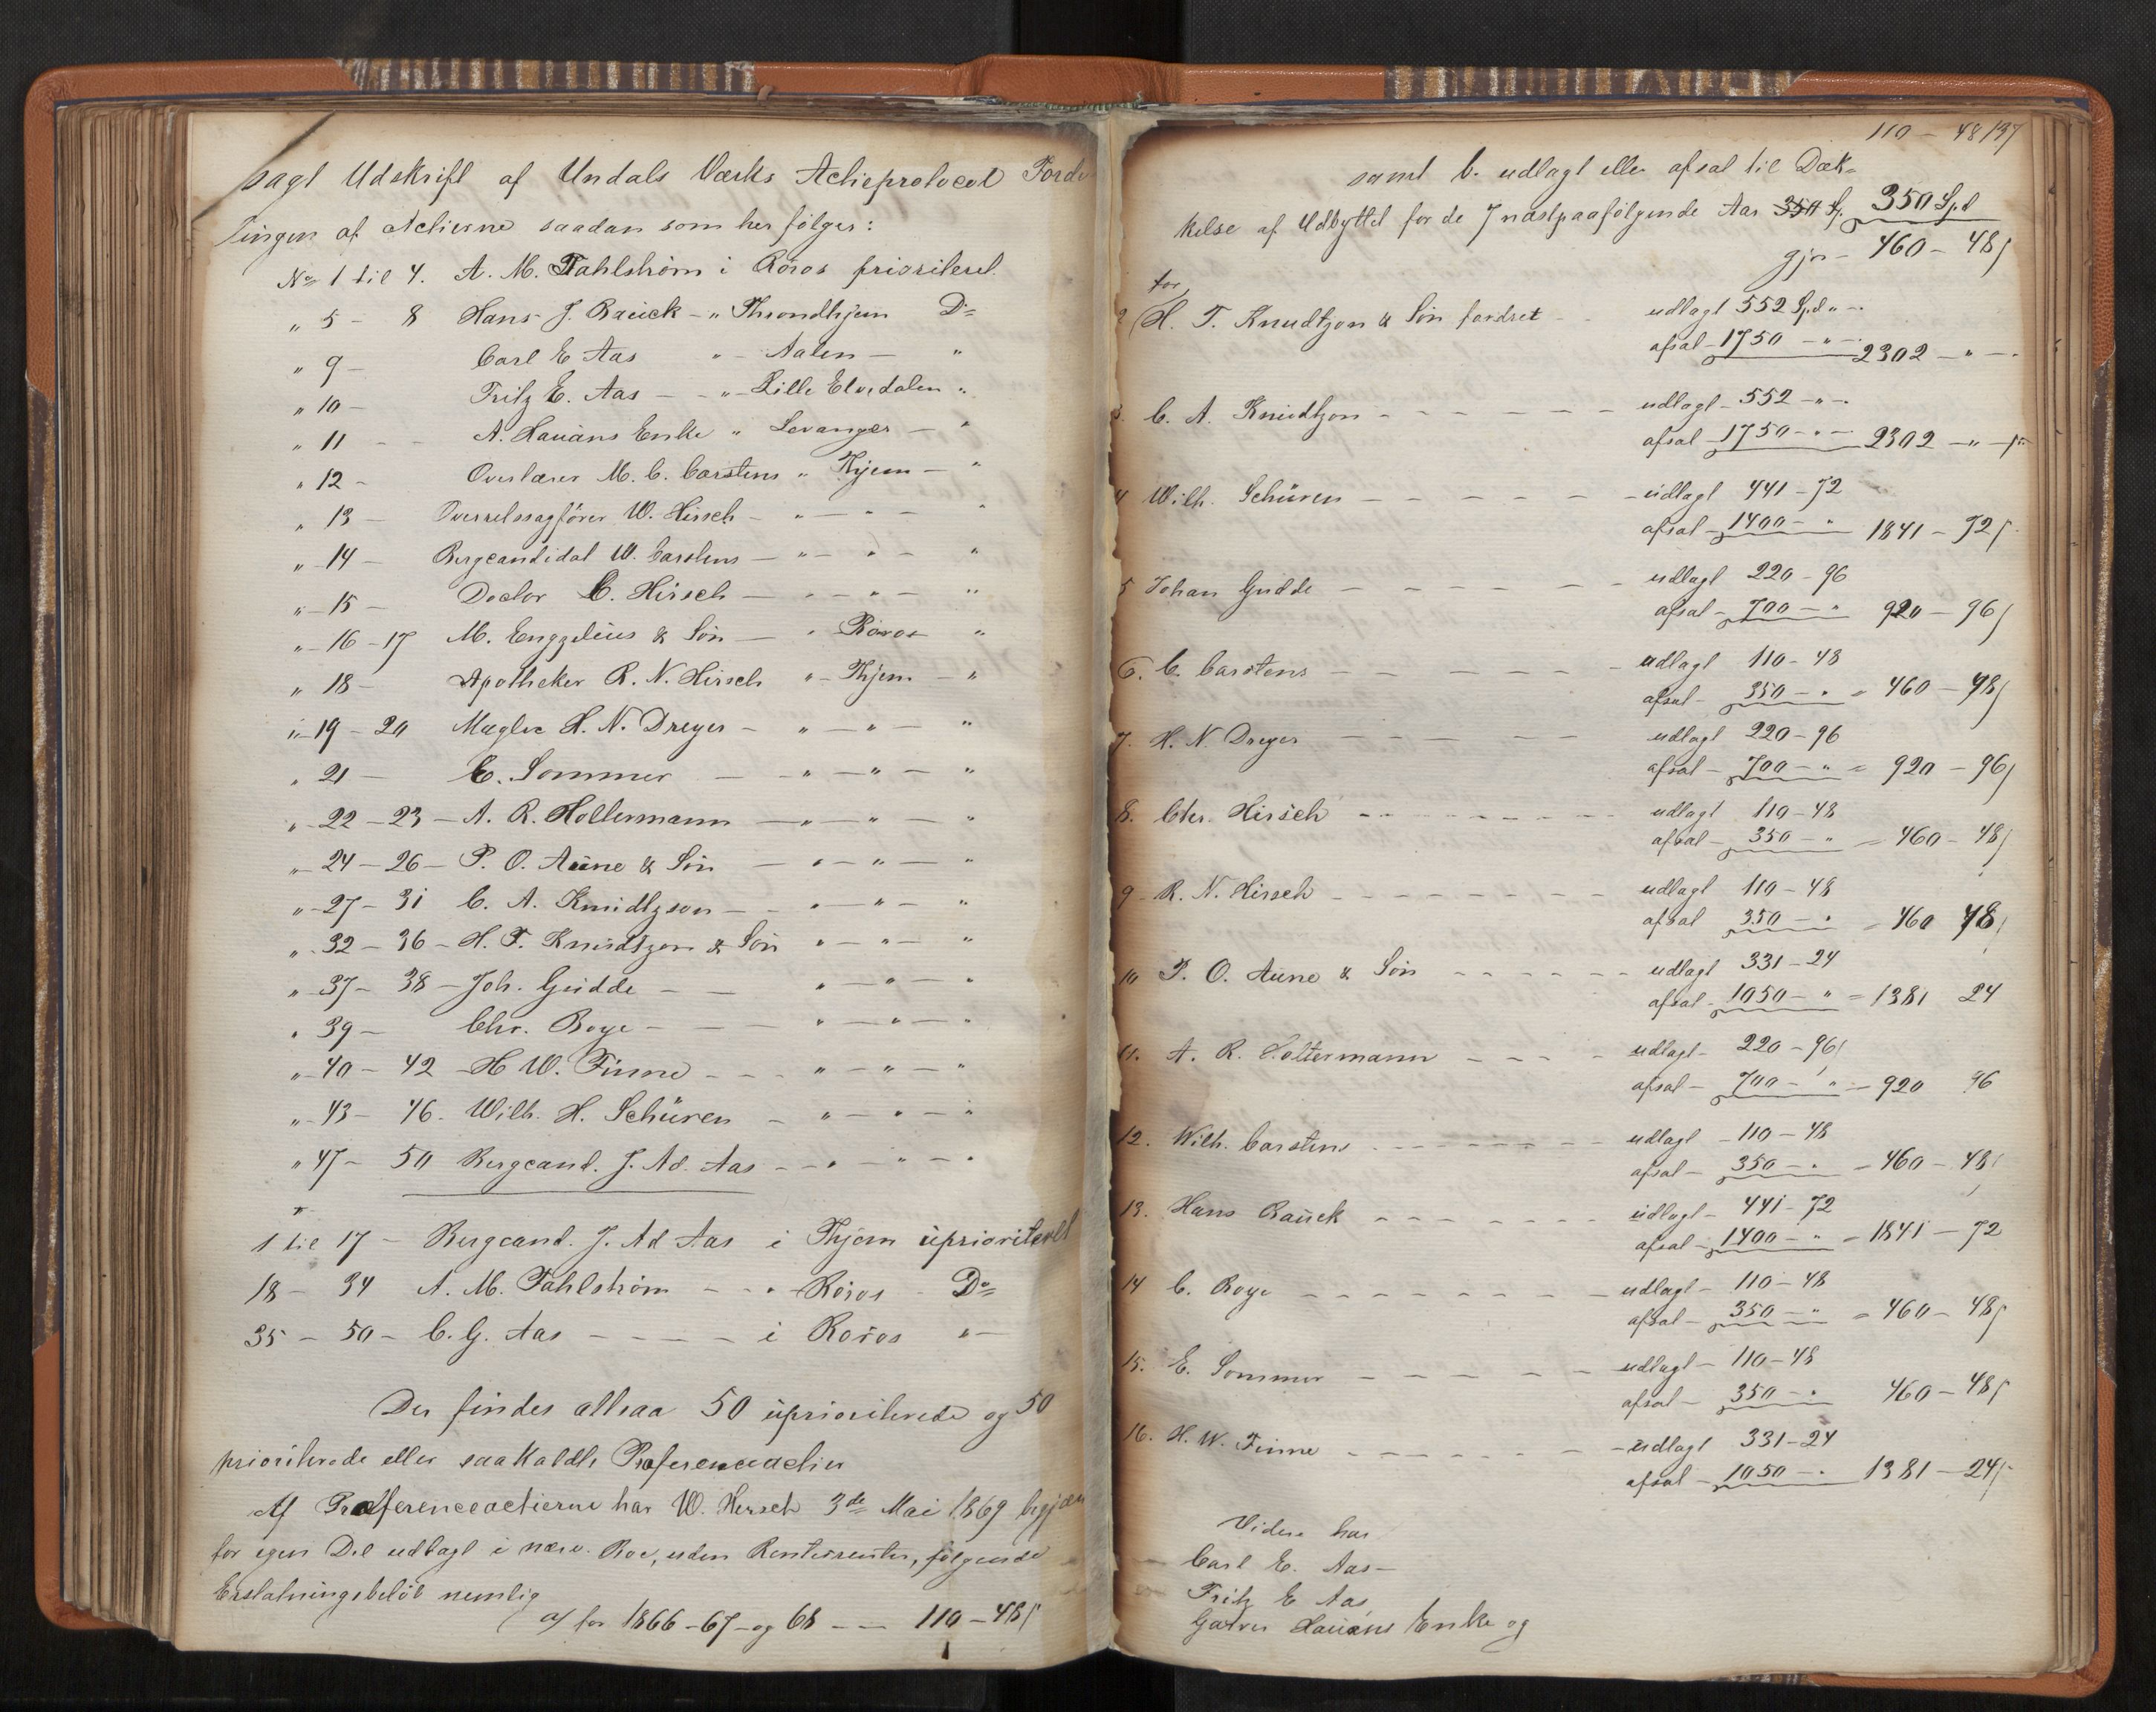 sagt Udskrift af Undals Værks Actieprotocol Forde
lingen af Actierne saadan som her følger:
No 1 til 4. A. M. Fahlstrøm i Røros prioriteret.
" 5 - 8 Hans J. Rauck - " Throndhjem Do
" 9 - Carl E Aas " - Aalen - "
" 10 - Fritz E. Aas - - " - Lille Elvedalen "
" 11 - - A. Hauans Enke " Levanger - "
" 12 - Overlærer M. C. Carstens " Thjem - "
" 13 - Overretssagfører W. Hirsch - " - " - "
" 14 - Bergcandidat W. Carstens - " - " - "
" - 15 - Doctor C. Hirsch - " - " - "
" - 16 - 17 M. Engzelius & Søn - " Røros "
" 18 - Apotheker R. N. Hirsch " - Thjem - "
" - 19 - 20 Mægler H. N. Dreyer - " - " - "
" 21 - E. Sommer - " - " - "
" 22 - 23 - A. R. Holtermann - " - " - "
" 24 - 26 - P. O. Aune & Søn - " - " - "
" - 27 - 31 C. A. Knudtzson - - " - " - "
" 32 - 36 - H. F. Knudtzon & Søn " - " - "
" 37 - 38 - Joh. Gudde - - " - " - "
" 39 - Chr. Boye - - - " - " - "
" - 40 - 42 - H W. Finne - - - " - " - "
" - 43 - 46. Wilh. H. Schüren - " - " - "
" 47 - 50 Bergcand. J. Ad. Aas - - " - " - "
1 til 17 - Bergcand. J. Ad Aas i Thjem uprioriteret
18 - 34 A. M. Fahlstrøm - - " Røros - Do
35 - 50 - C. G. Aas - - - - i Røros " -
Der findes altsaa 50 uprioriterede og 50
prioriterede eller saakaldte Præferenceactier
Af Præferenceactierne har W. Hirsch 3de Mai 1869 begjær
for egen Del udtagt i nærv. Boe, uden Renterrenter, følgende
Erstatningsbeløb nemlig
a/ for 1866-67-og 68 - - 110 - 48 ſ
110 - 48 137
samt b. udlagt eller afsat til Dæk-
kelse af Udbyttet for de 7 næstpaafølgende Aar 350 Sp. 350 Spd
gjør - 460 - 48 ſ
for
2 H. F. Knudtzon & Søn fordret - udlagt 552 Spd " -
afsat - 1750 - " - 2302 - " -
3. C. A. Knudtzon - - - - - - udlagt - 552 - " -
afsat - 1750 - " - 2302 - " -
4 Wilh. Schüren - - - - - - udlagt 441 - 72
afsat - 1400 - " 1841 - 72 ſ
5 Johan Gudde - - - - - - udlagt 220 - 96
afsat - 700 - " 920 - 96 ſ
6. C. Carstens - - - - - - udlagt 110 - 48
afsat - 350 - " = 460 - 48 ſ
7. H. N. Dreyer - - - - - udlagt 220 - 96
afsat - 700 - " = 920 - 96 ſ
8. Chr. Hirsch - - - - - - - - udlagt 110 - 48
afsat - 350 - " = 460 - 48 ſ
9 - R. N. Hirsch - - - - - - - - udlagt 110 - 48
afsat 350 - " = 460 48 ſ
10 P. O. Aune & Søn - - - - - - udlagt 331 - 24
afsat - 1050 - " = 1381 24
11. A. R. Holtermann - - - - udlagt - 220 - 96 ſ
afsat - 700 - " = 920 96
12. Wilh. Carstens - - - - - - - - udlagt - 110 - 48
afsat - 350 - " = 460 - 48 ſ
13. Hans Rauck - - - - - - - - udlagt - 441 - 72
afsat - 1400 - " = 1841 - 72
14 C. Boye - - - - - - - - udlagt - 110 - 48
afsat - 350 - " = 460 - 48 ſ
15. E. Sommer - - - - - - udlagt - 110 - 48
afsat - 350 - " 460 - 48 ſ
16. H. W. Finne - - - - - - - udlagt 331 - 24
afsat - 1050 - " 1381 - 24 ſ
Videre har
Carl E. Aas -
Fritz E Aas
Garver Hauans Enke og